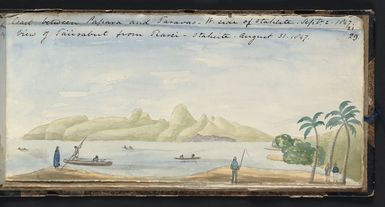 Coast between Papara and Paravao. W. side of Otaheite. Sept. 2. 1847
View of Tairabut from Piavei - Otaheite. August 31. 1847.
29